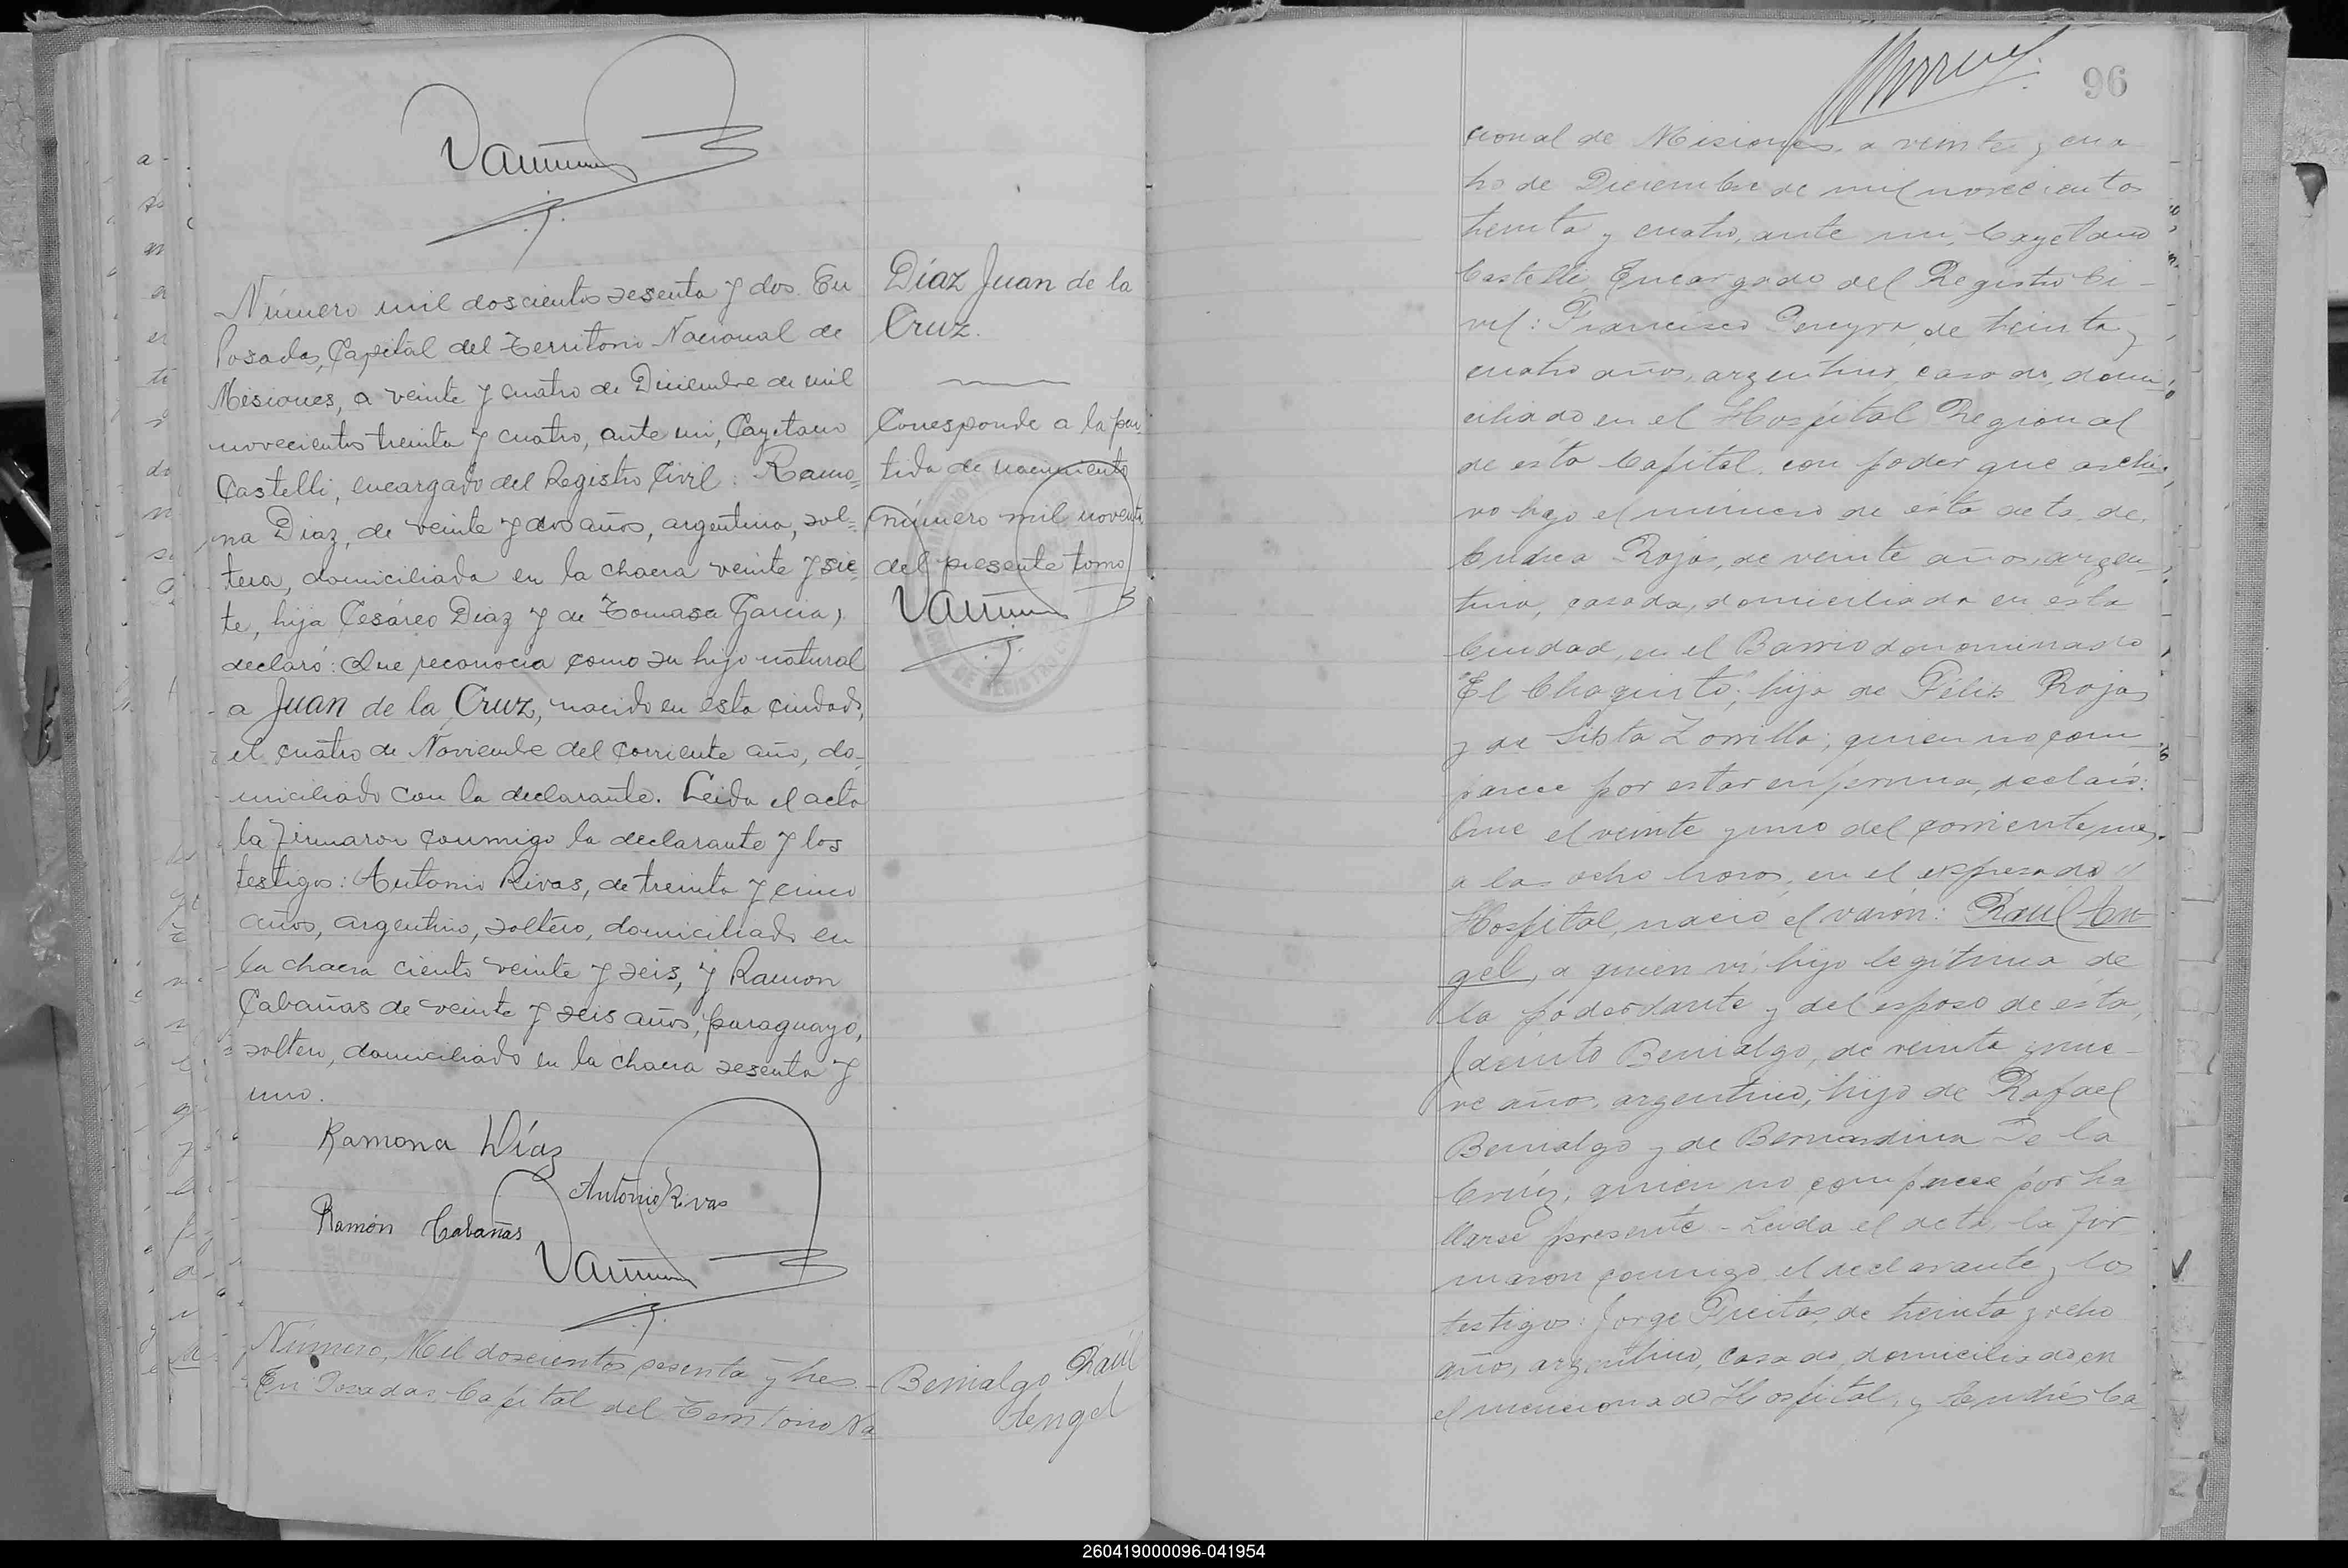 Número mil doscientos sesenta y dos. En
Posadas, Capital del Territorio Nacional de
Misiones, a veinte y cuatro de Diciembre de mil
novecientos treinta y cuatro, ante mi, Cayetano
Castelli, encargado del Registro Civil: Ramo=
na Diaz, de veinte y dos años, argentina, sol=
tera, domiciliada en la chacra veinte y sie=
te, hija Cesáreo Diaz y de Tomasa Garcia,
declaró: Que reconocia como su hijo natural
a Juan de la Cruz, nacido en esta ciudad,
el cuatro de Noviembre del corriente año, do=
miciliado con la declarante. Leida el acta
la firmaron conmigo la declarante y los
testigos: Antonio Rivas, de treinta y cinco
años, argentino, soltero, domiciliado en
la chacra ciento veinte y seis, y Ramon
Cabañas de veinte y seis años, paraguayo,
soltero, domiciliado en la chacra sesenta y
uno.
Ramona Díaz
Antonio Rivas
Ramón Cabañas
Número, Mil doscientos sesenta y tres.-
En Posadas, Capital del Territorio Na
Díaz Juan de la
Cruz.
Corresponde a la par
tida de nacimiento
número mil noventa
del presente tomo
Benialgo Raúl
Angel
96
cional de Misiones, a veinte y cua
tro de Diciembre de mil novecientos
treinta y cuatro, ante mi, Cayetano
Castelli, Encargado del Registro Ci-
vil: Francisco Pereyra, de treinta y
cuatro años, argentino, casado, domi
ciliado en el Hospital Regional
de esta Capital, con poder que archi
vo bajo el número de esta acta, de
Andrea Rojas, de veinte años, argen-
tina, casada, domiciliada en esta
Ciudad, en el Barrio denominado
"El Chaquito", hija de Félix Rojas
y de Sixta Zorrilla; quien no com
parece por estar enferma, declaró:
Que el veinte y uno del corriente mes,
a las ocho horas, en el expresado
Hospital, nació el varón: Raúl An-
gel, a quien ví, hijo legítimo de
la poderdante y del esposo de ésta,
Jacinto Benialgo, de veinte y nue-
ve años, argentino, hijo de Rafael
Benialgo y de Bernardina De la
Crúz, quien no comparece por ha
llarse presente - Leida el acta, la fir
maron conmigo el declarante y los
testigos: Jorge Freitas, de treinta y ocho
años, argentino, casado, domiciliado en
el mencionado Hospital, y Andrés Ca-
260419000096-041954